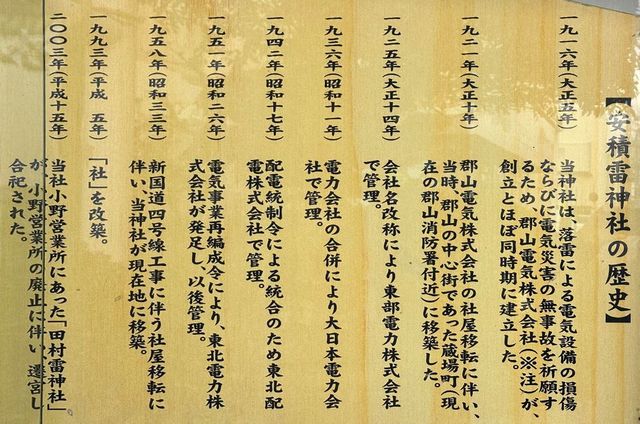 【安積雷神社の歴史】
一九一六年(大正五年)
当神社は、落雷による電気設備の損傷
ならびに電気災害の無事故を祈願す
るため、郡山電気株式会社(※注)が、
創立とほぼ同時期に建立した。
一九二一年(大正十年)
郡山電気株式会社の社屋移転に伴い、
当時、郡山の中心街であった蔵場町(現
在の郡山消防署付近)に移築した。
一九二五年(大正十四年)
会社名改称により東部電力株式会社
で管理。
一九三六年(昭和十一年)
電力会社の合併により大日本電力会
社で管理。
一九四二年(昭和十七年)
配電統制令による統合のため東北配
電株式会社で管理。
一九五一年(昭和二六年)
電気事業再編成令により、東北電力株
式会社が発足し、以後管理。
一九五八年(昭和三三年)
新国道四号線工事に伴う社屋移転に
伴い、当神社が現在地に移築。
一九九三年(平成 五年)
「社」を改築。
二〇〇三年(平成十五年)
当社小野営業所にあった「田村雷神社」
が、小野営業所の廃止に伴い、遷宮し
合祀された。